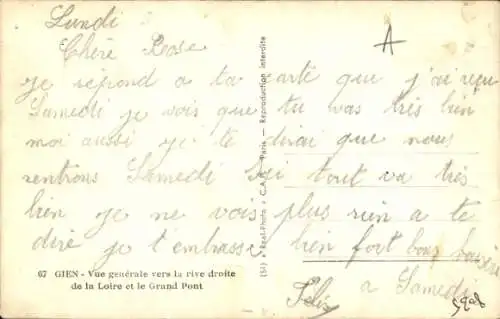 Lundi
A
Chère Rose
je répond a ta carte que j'ai reçu
Samedi je vois que tu vas très bien
moi aussi je te dirai que nous
rentrons Samedi Ici tout va très
bien je ne vois plus rien a te
dire je t'embrasse bien fort bons baisers
a Samedi
67 GIEN - Vue générale vers la rive droite
de la Loire et le Grand Pont
(SI) Real-Photo C.A.P. Paris - Reproduction interdite